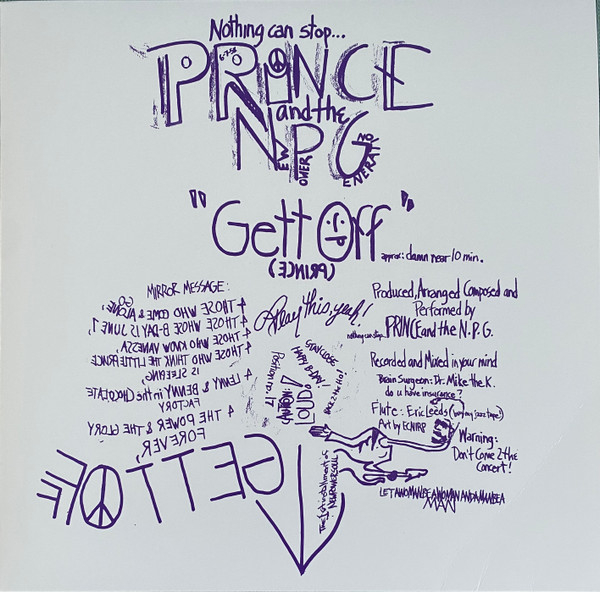 Nothing can stop...
PRINCE
6-7-58
and the
NPG
NEW POWER GENERATION
"Gett Off"
(PRINCE)
approx: damn near 10 min.
MIRROR MESSAGE:
4 THOSE WHO COME & GO ALONE,
4 THOSE WHOSE B-DAY IS JUNE 7
4 THOSE WHO KNOW VANESSA
4 THOSE WHO THINK THE LITTLE PRINCE
IS SLEEPING,
4 LENNY & BENNY in the CHOCOLATE
FACTORY
4 THE POWER & THE GLORY
FOREVER,
GETT OFF
Play this, yeah!
STAY CLOSE
HAPPY B-DAY!
CAUTION:
LOUD!
The 1st installment of
NEW POWER SOUL
Produced, Arranged Composed and
Performed by
nothing can stop... PRINCE and the N.P.G.
Recorded and Mixed in your mind
Brain Surgeon: Dr. Mike the K.
do u have insurance?
Flute: Eric Leeds
Art by ECNIRP
Warning:
Don't Come 2 the
Concert!
LET A WOMAN BE A WOMAN AND A MAN BE A
MAN